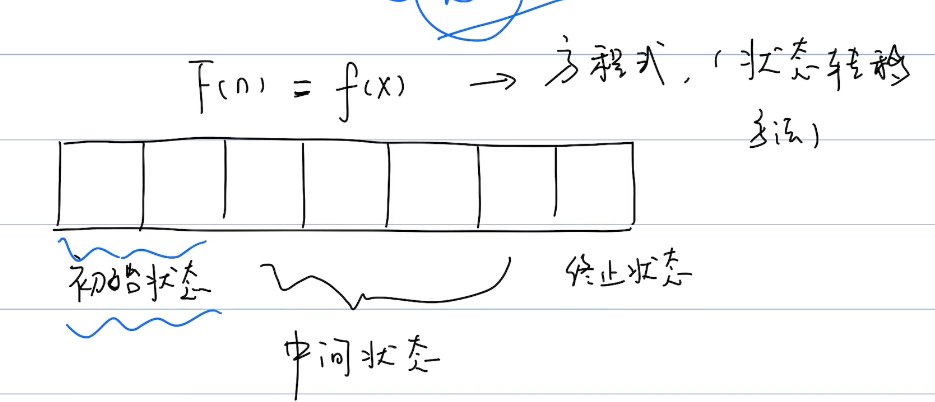 F(n) = f(x) → 方程式, (状态转移
方法)
初始状态
终止状态
中间状态